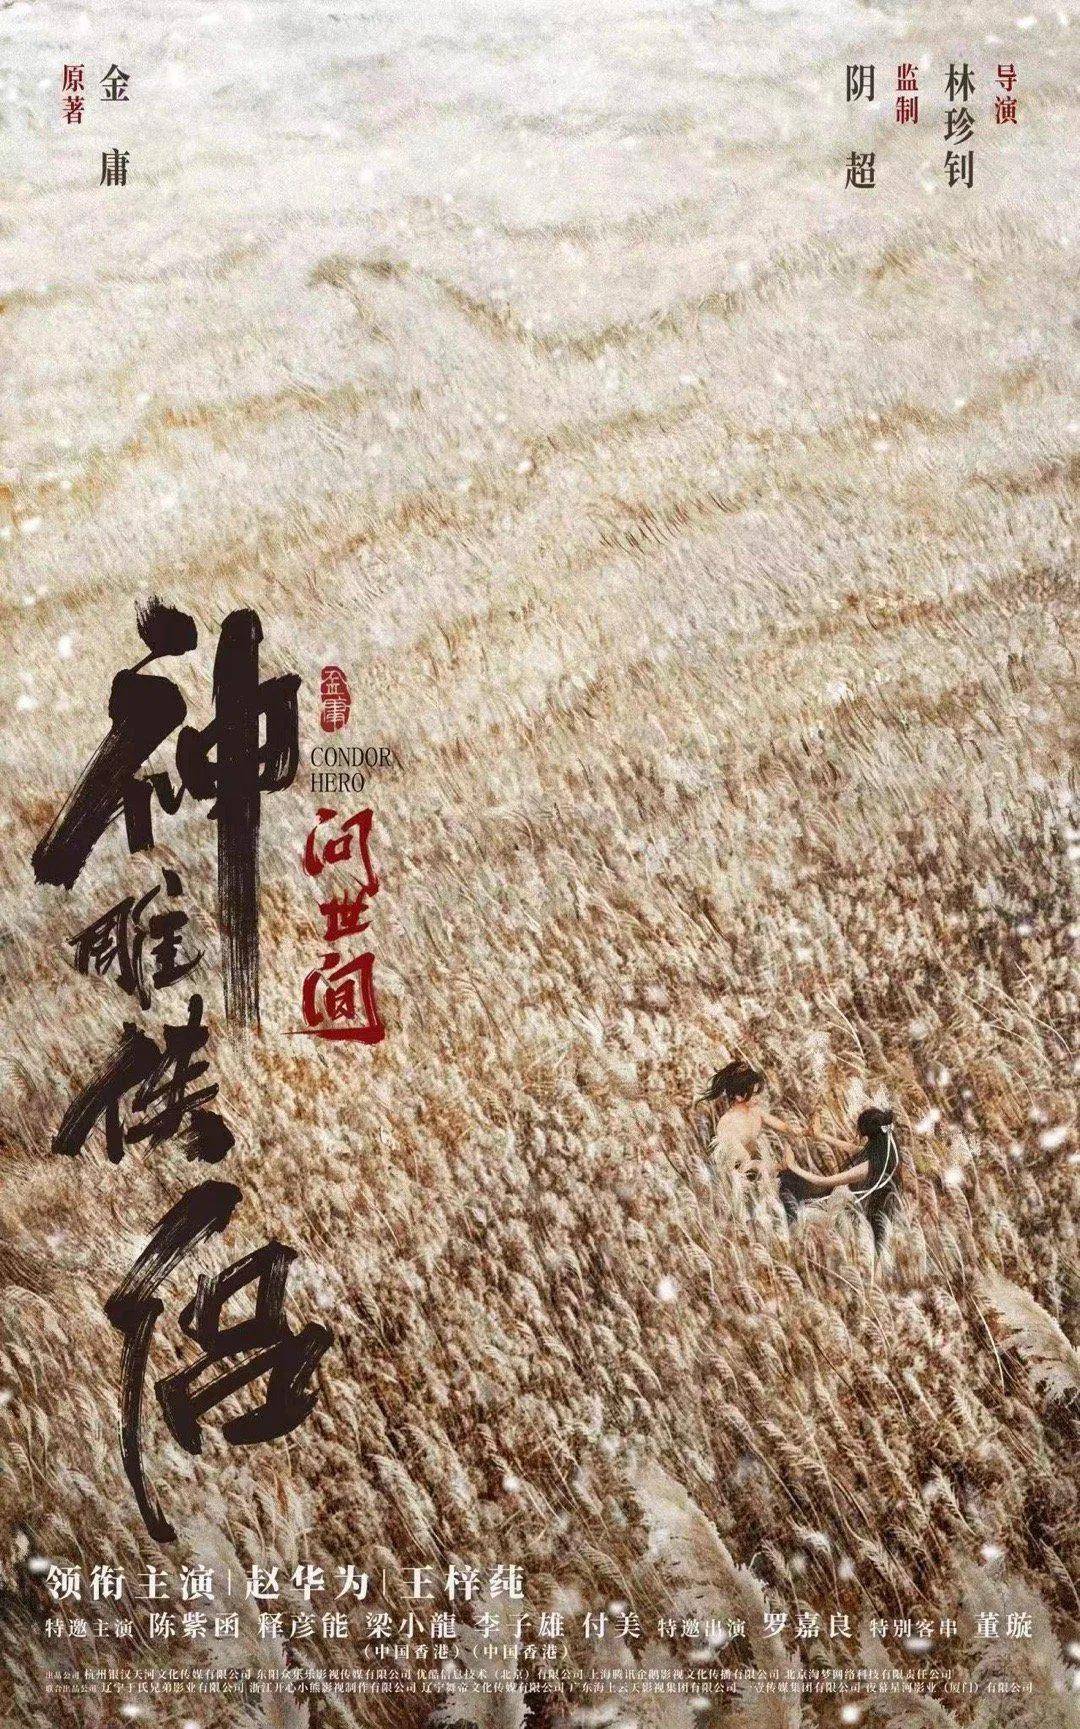 导演
林珍钊
监制
阴超
金庸
原著
神雕侠侣
金庸
CONDOR
HERO
问世间
领衔主演|赵华为|王梓莼
特邀主演 陈紫函 释彦能 梁小龍 李子雄 付美 特邀出演 罗嘉良 特别客串 董璇
(中国香港)(中国香港)
出品公司 杭州银汉天河文化传媒有限公司 东阳众乐乐影视传媒有限公司 优酷信息技术(北京)有限公司 上海腾讯企鹅影视文化传播有限公司 北京淘梦网络科技有限责任公司
联合出品公司 辽宁于氏兄弟影业有限公司 浙江开心小熊影视制作有限公司 辽宁舞帝文化传媒有限公司 广东海上云天影视集团有限公司 一壹传媒集团有限公司 夜幕星河影业(厦门)有限公司